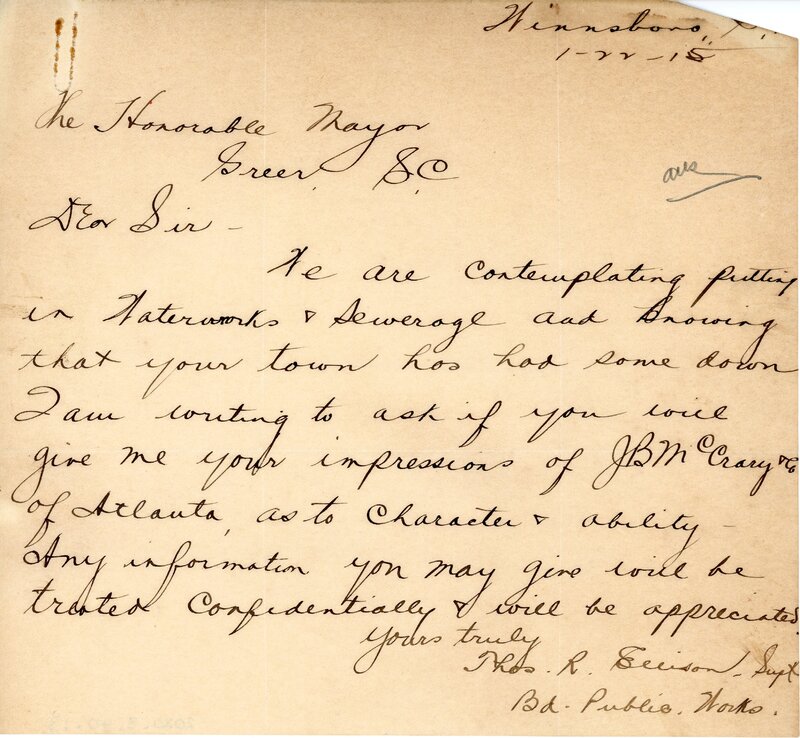 Winnsboro, S.
1-22-15
The Honorable Mayor
Greer, S.C
ans
Dear Sir -
We are contemplating putting
in Waterworks & Sewerage and knowing
that your town has had some down
I am writing to ask if you will
give me your impressions of J B McCrary & Co
of Atlanta, as to character & ability -
Any information you may give will be
treated confidentially & will be appreciated.
yours truly
Thos. R. Ellison, Supt
Bd. Public. Works.